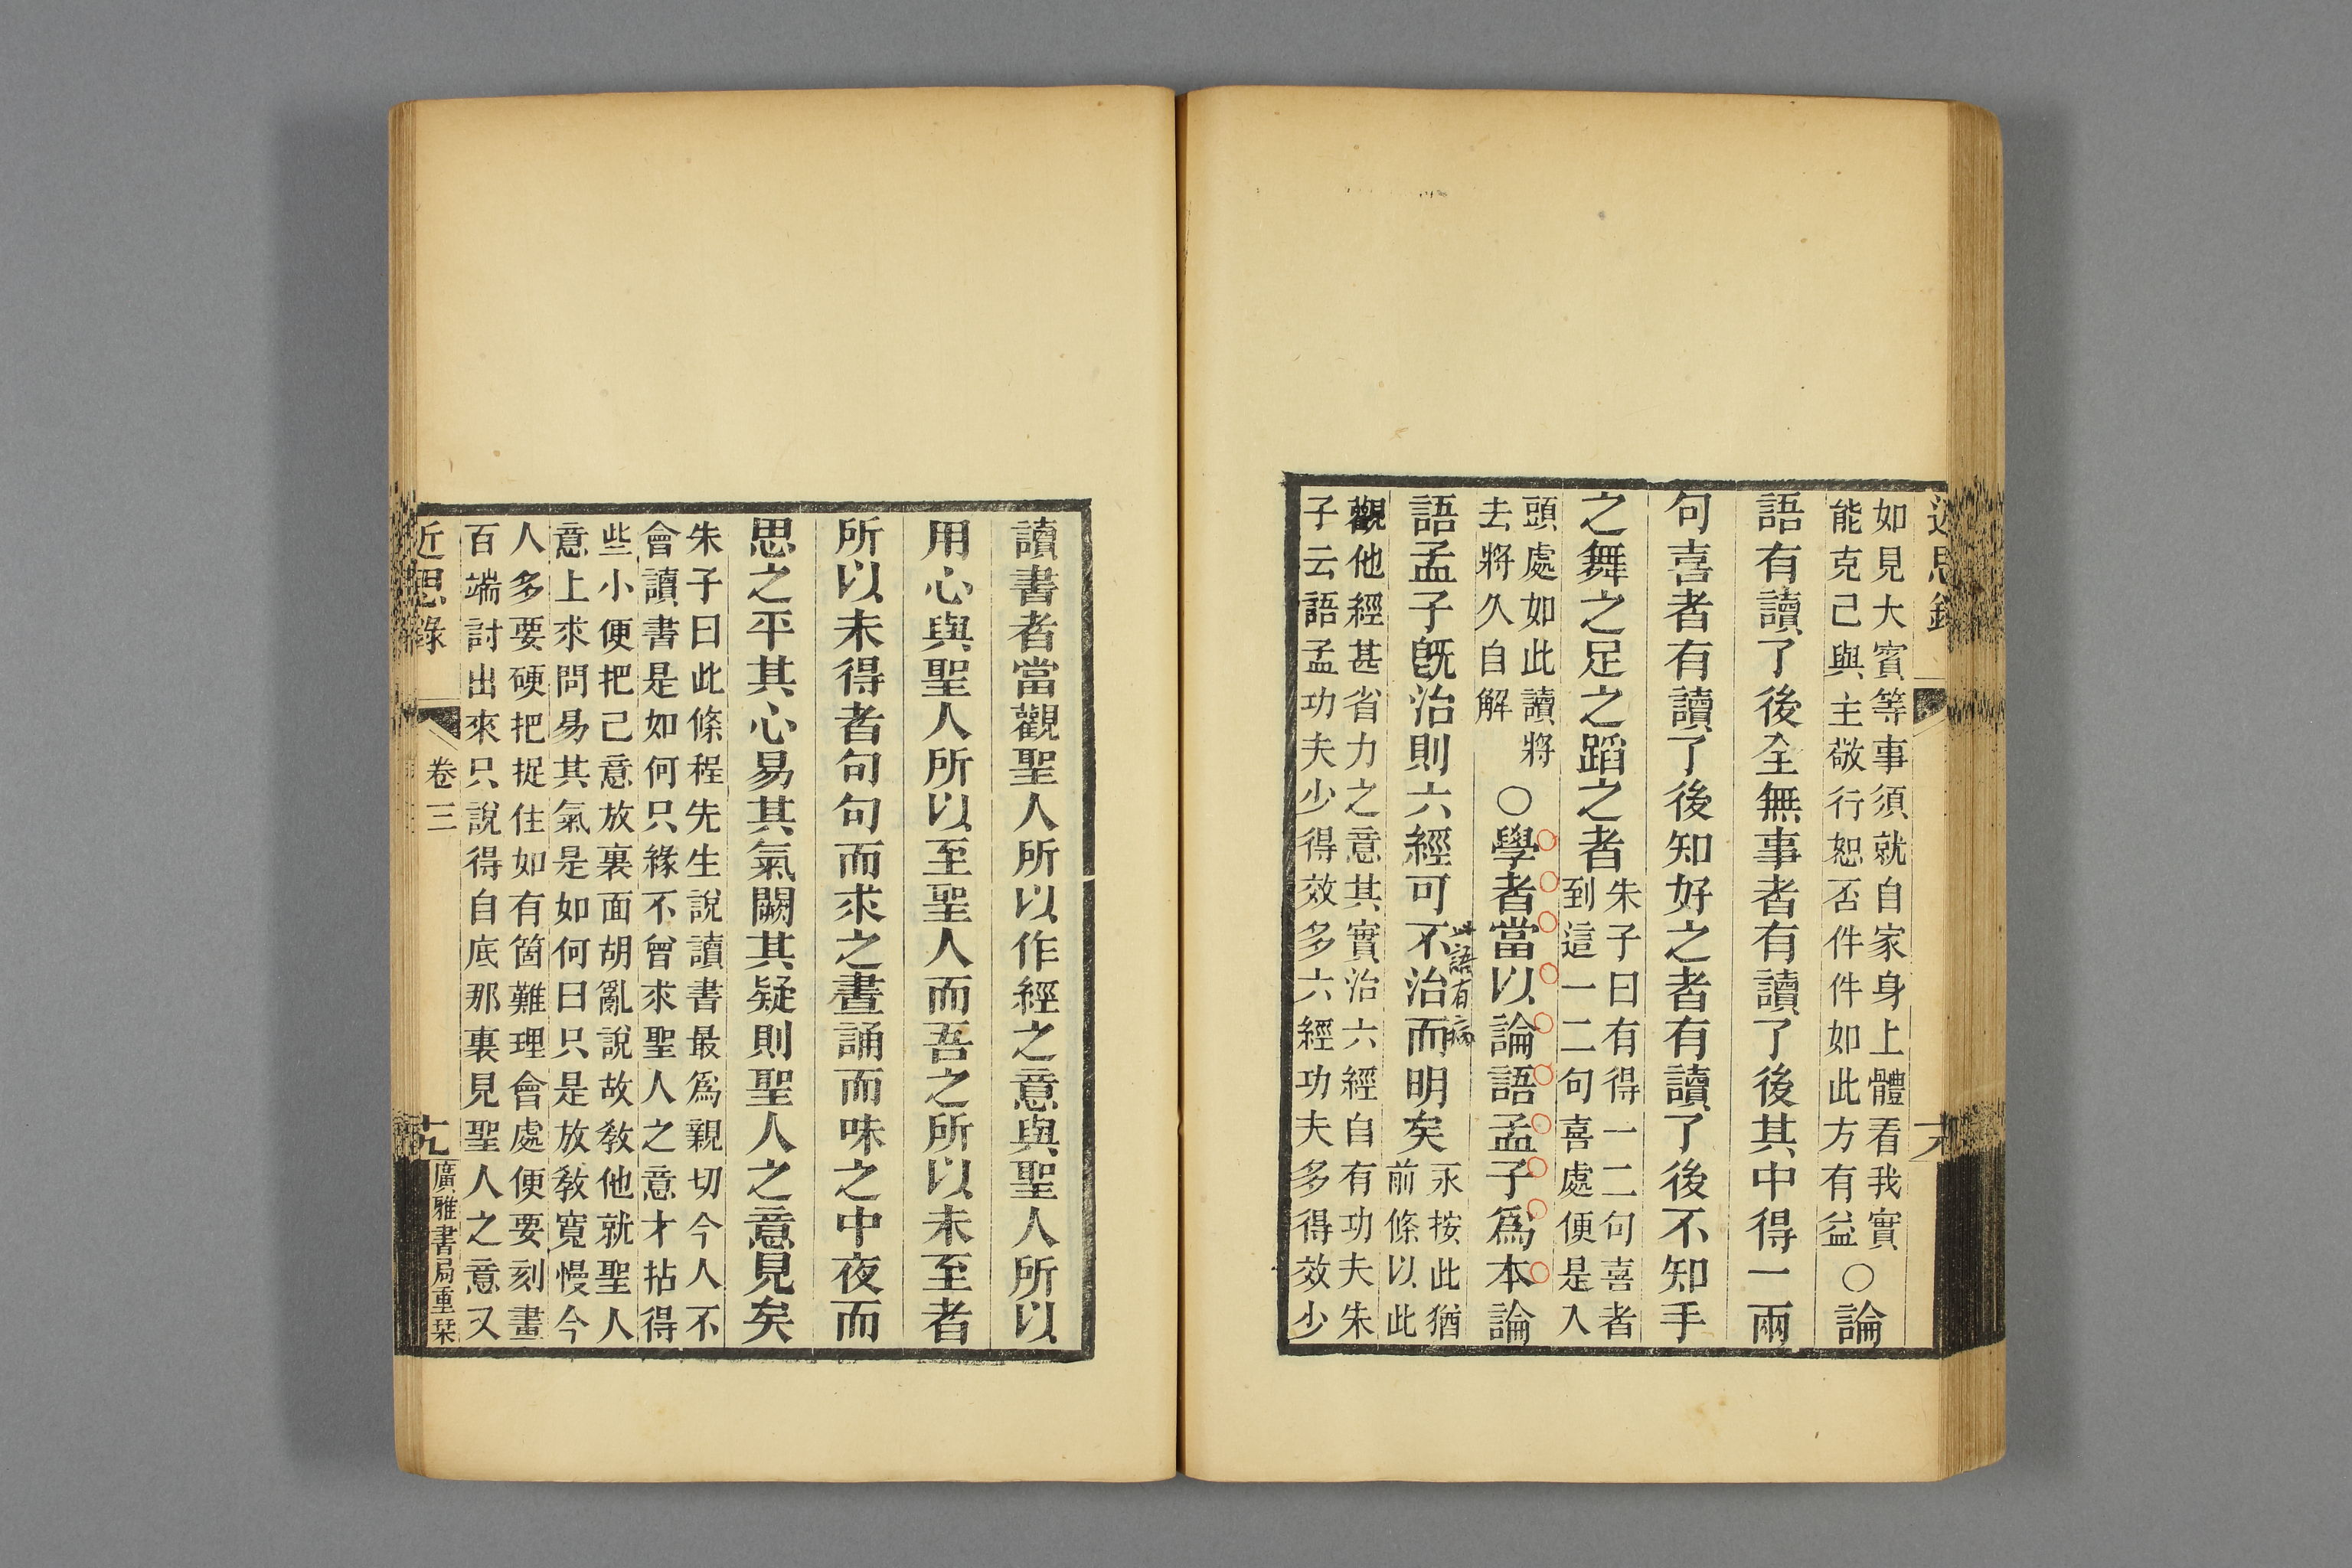 近思錄
如見大賓等事須就自家身上體看我實
能克己與主敬行恕否件件如此方有益
〇論
語有讀了後全無事者有讀了後其中得一兩
句喜者有讀了後知好之者有讀了後不知手
之舞之足之蹈之者
朱子曰有得一二句喜者
到這一二句喜處便是入
頭處如此讀將
去將久自解
〇學者當以論語孟子爲本論
語孟子旣治則六經可不治而明矣
此語有病
永按此猶
前條以此
觀他經甚省力之意其實治六經自有功夫朱
子云語孟功夫少得效多六經功夫多得效少
讀書者當觀聖人所以作經之意與聖人所以
用心與聖人所以至聖人而吾之所以未至者
所以未得者句句而求之晝誦而味之中夜而
思之平其心易其氣闕其疑則聖人之意見矣
朱子曰此條程先生說讀書最爲親切今人不
會讀書是如何只緣不曾求聖人之意才拈得
些小便把己意放裏面胡亂說故敎他就聖人
意上求問易其氣是如何曰只是放敎寬慢今
人多要硬把捉住如有箇難理會處便要刻畫
百端討出來只說得自底那裏見聖人之意又
近思錄
卷三
廣雅書局重栞